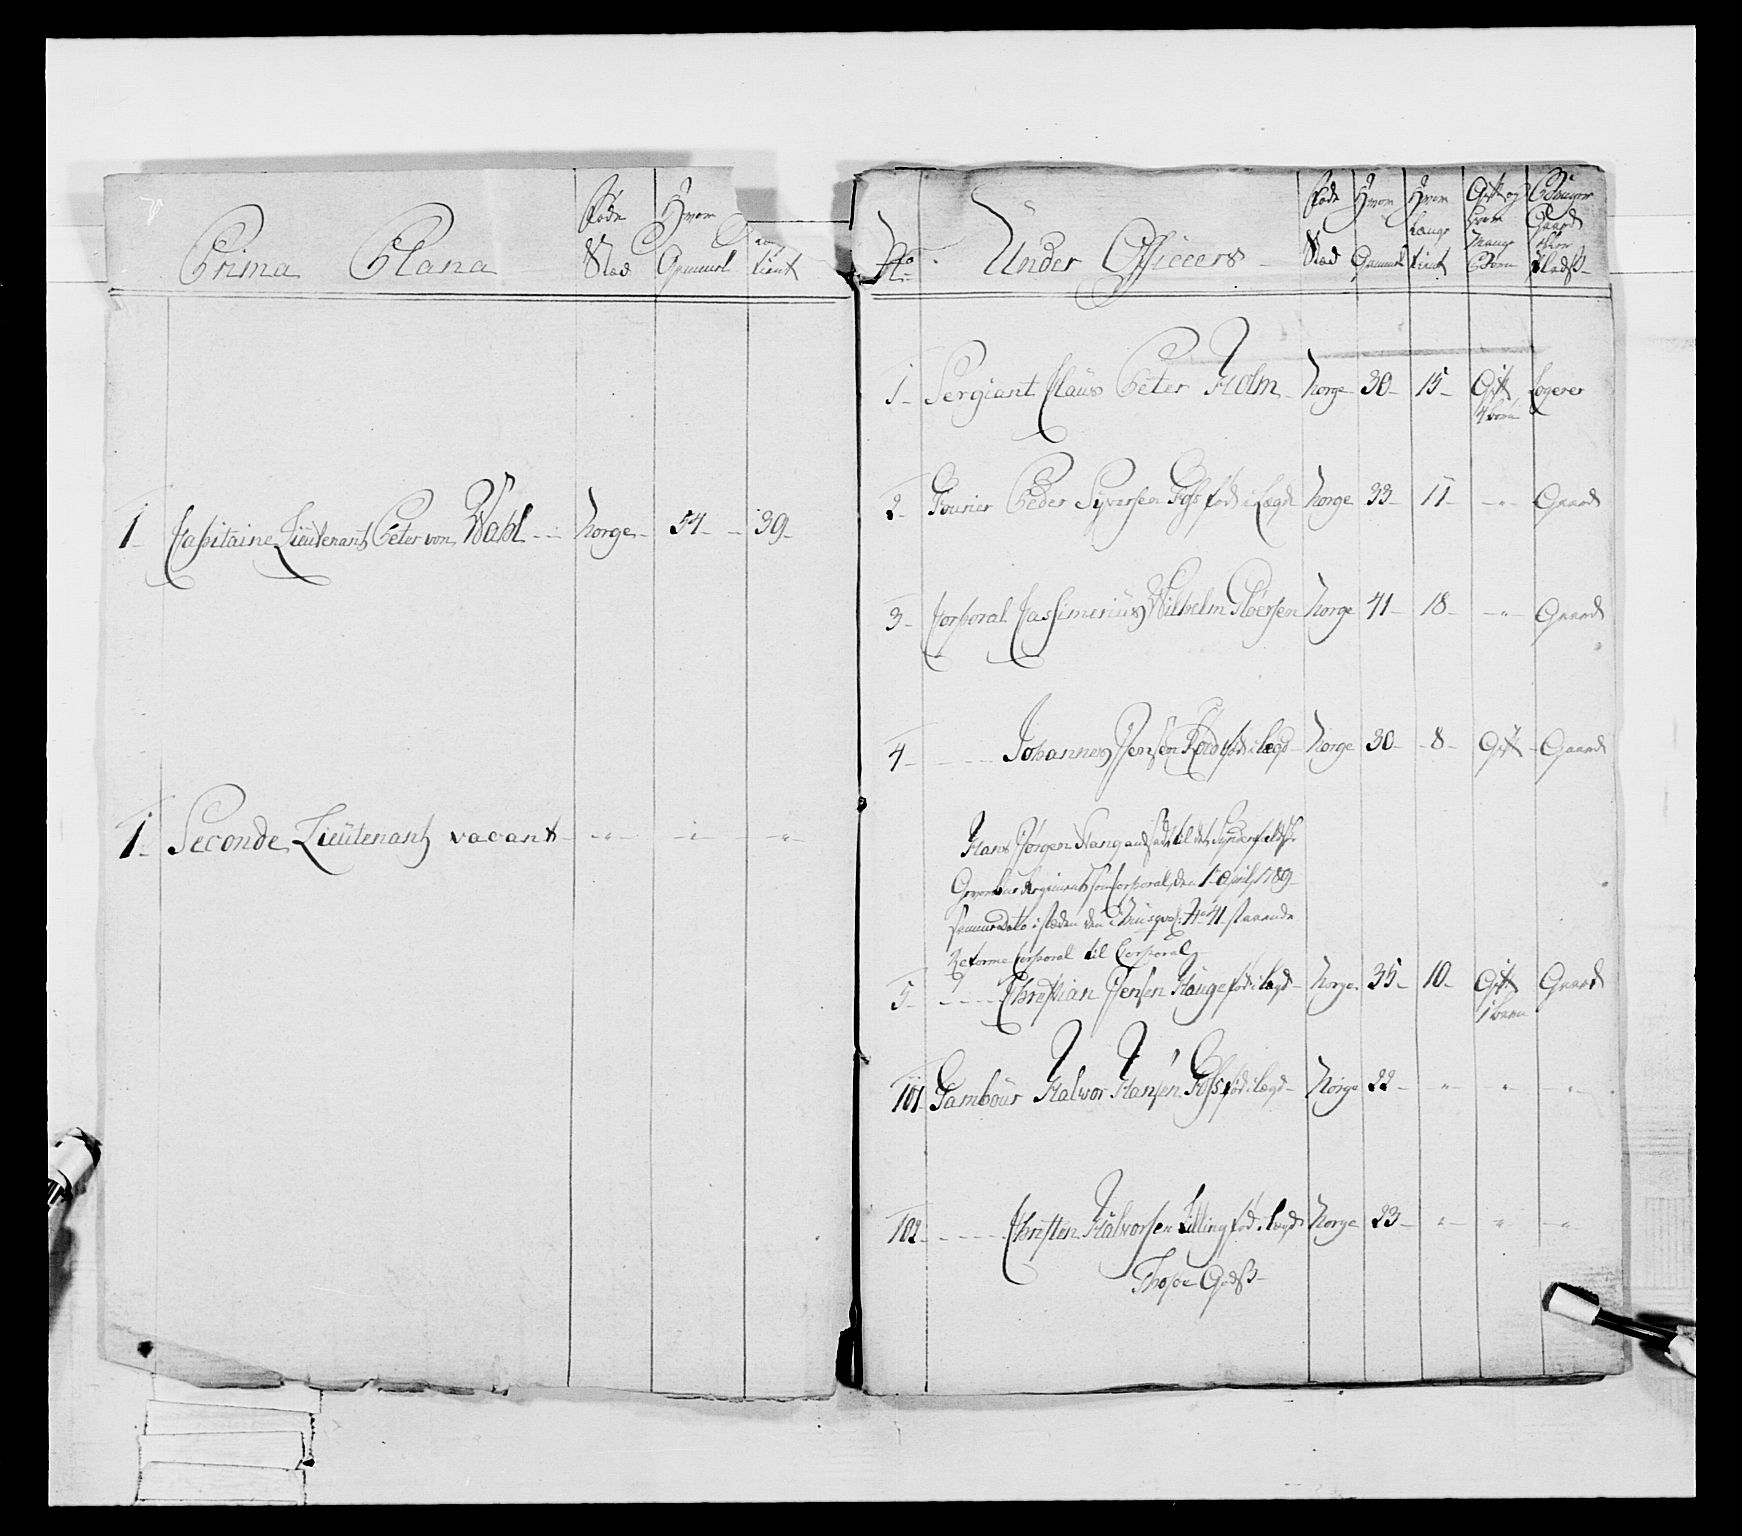 Prima Plana
Føde Stæd
Hvor Gammel
Lang tient
1 Capitaine Lieutenant Peter von Wahl Norge 54 39
1 Seconde Lieutenant vacant
No Under Officeers
Føde Stæd
Hvor Gammel
Hvor Lange tient
Gift og hvor Mange Børn
Gaard
Plads
1 Sergiant Claus Peter Holm Norge 30 15 Gift Logerer
4 børn
2 Fourier Peder Syversen Foss fød i Lægd Norge 33 11 Gaard
3 Corporal Cassimerius Wilhelm Norge 41 18 Gaard
4 Johannes Jensen fød i lægd Norge 30 8 Gift Gaard
Hans Jørgen Stang til det
Regiment som Corporal, den 1 April 1789
i stæden den No 41 staaende
Reforme Corporal til Corporal
5 Christian Jensen Hauge fød i lægd Norge 35 10 Gift Gaard
1 barn
101 Tambour Halvor Hansen Foss fød i lægd Norge 22
102 Christen Halvorsen Lilling fød i lægd Norge 23
Godss